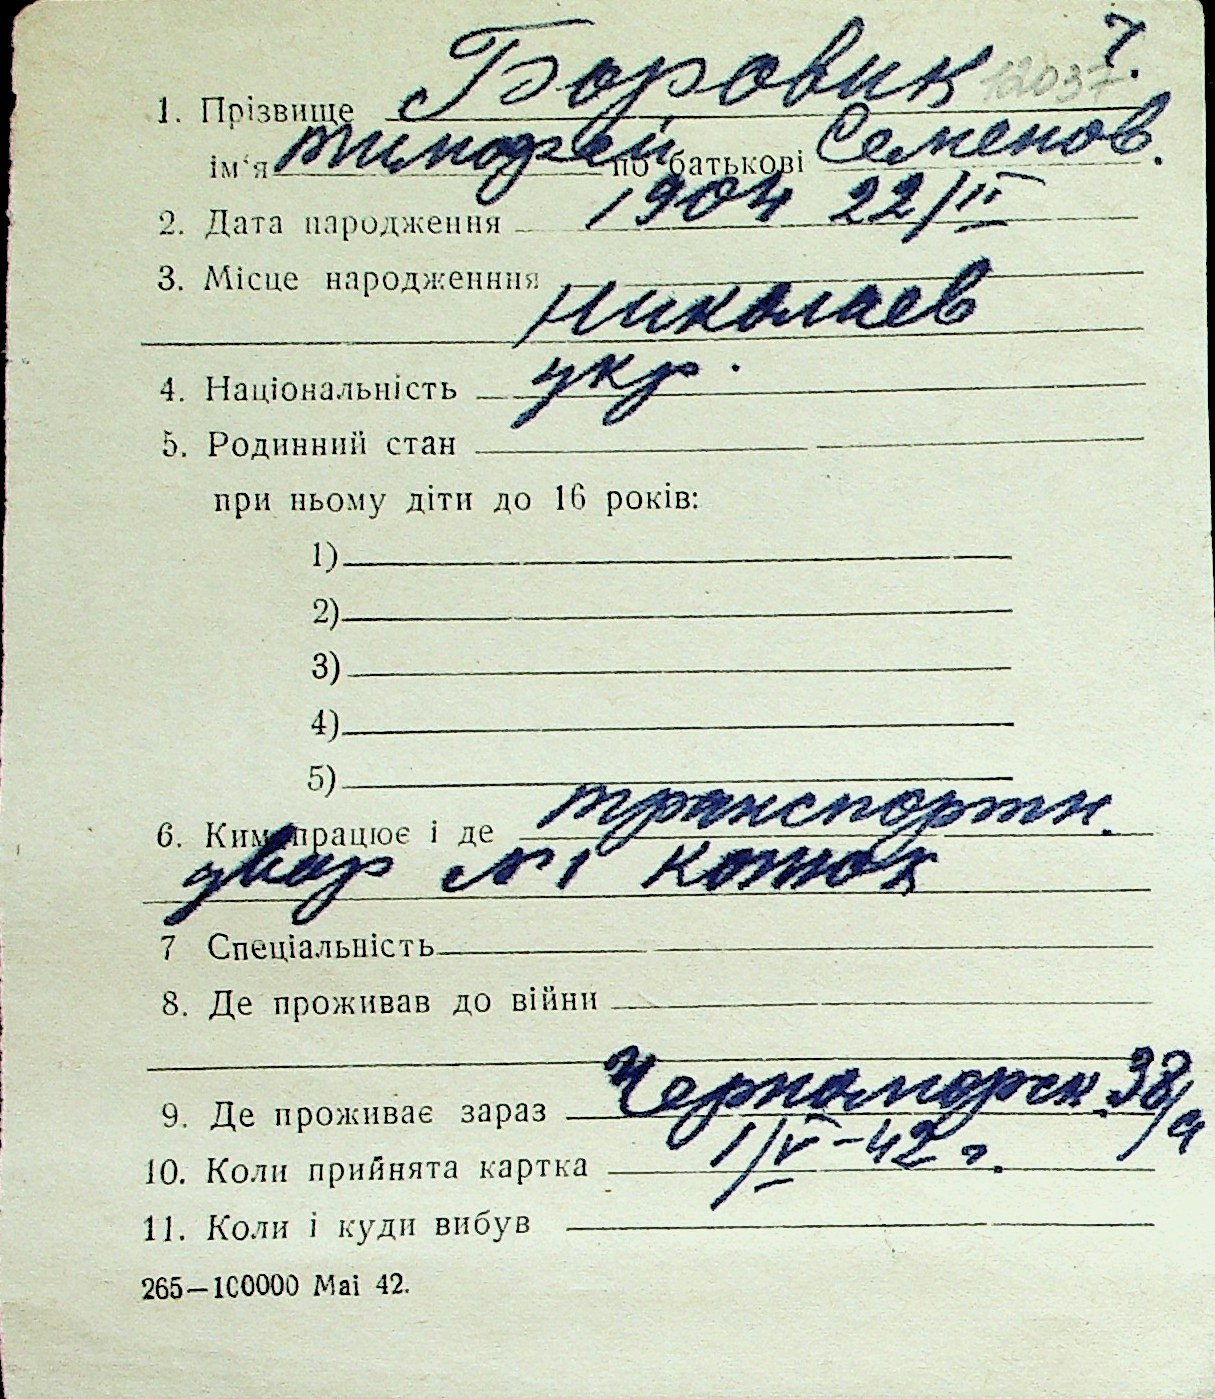 7.
1. Прізвище Боровик 12037
ім'я Тимофей по батькові Семенов.
2. Дата народження 1904 22/II
3. Місце народженння
Николаев
4. Національність укр.
5. Родинний стан
при ньому діти до 16 років:
1)
2)
3)
4)
5)
6. Ким працює і де транспортн.
двор №1 конюх
7 Спеціальність
8. Де проживав до війни
9. Де проживає зараз Черноморск. 38/а
10. Коли прийнята картка 1/V-42 г.
11. Коли і куди вибув
265—100000 Mai 42.